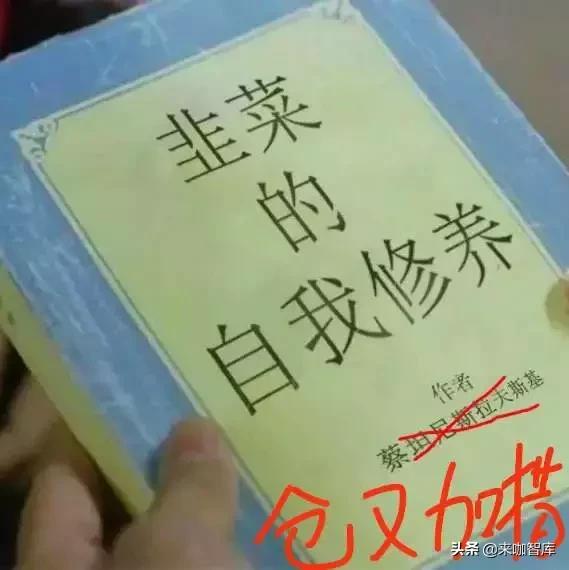 韭菜
的
自我修养
作者
蔡坦尼斯拉夫斯基
仓又加措
头条 @来咖智库